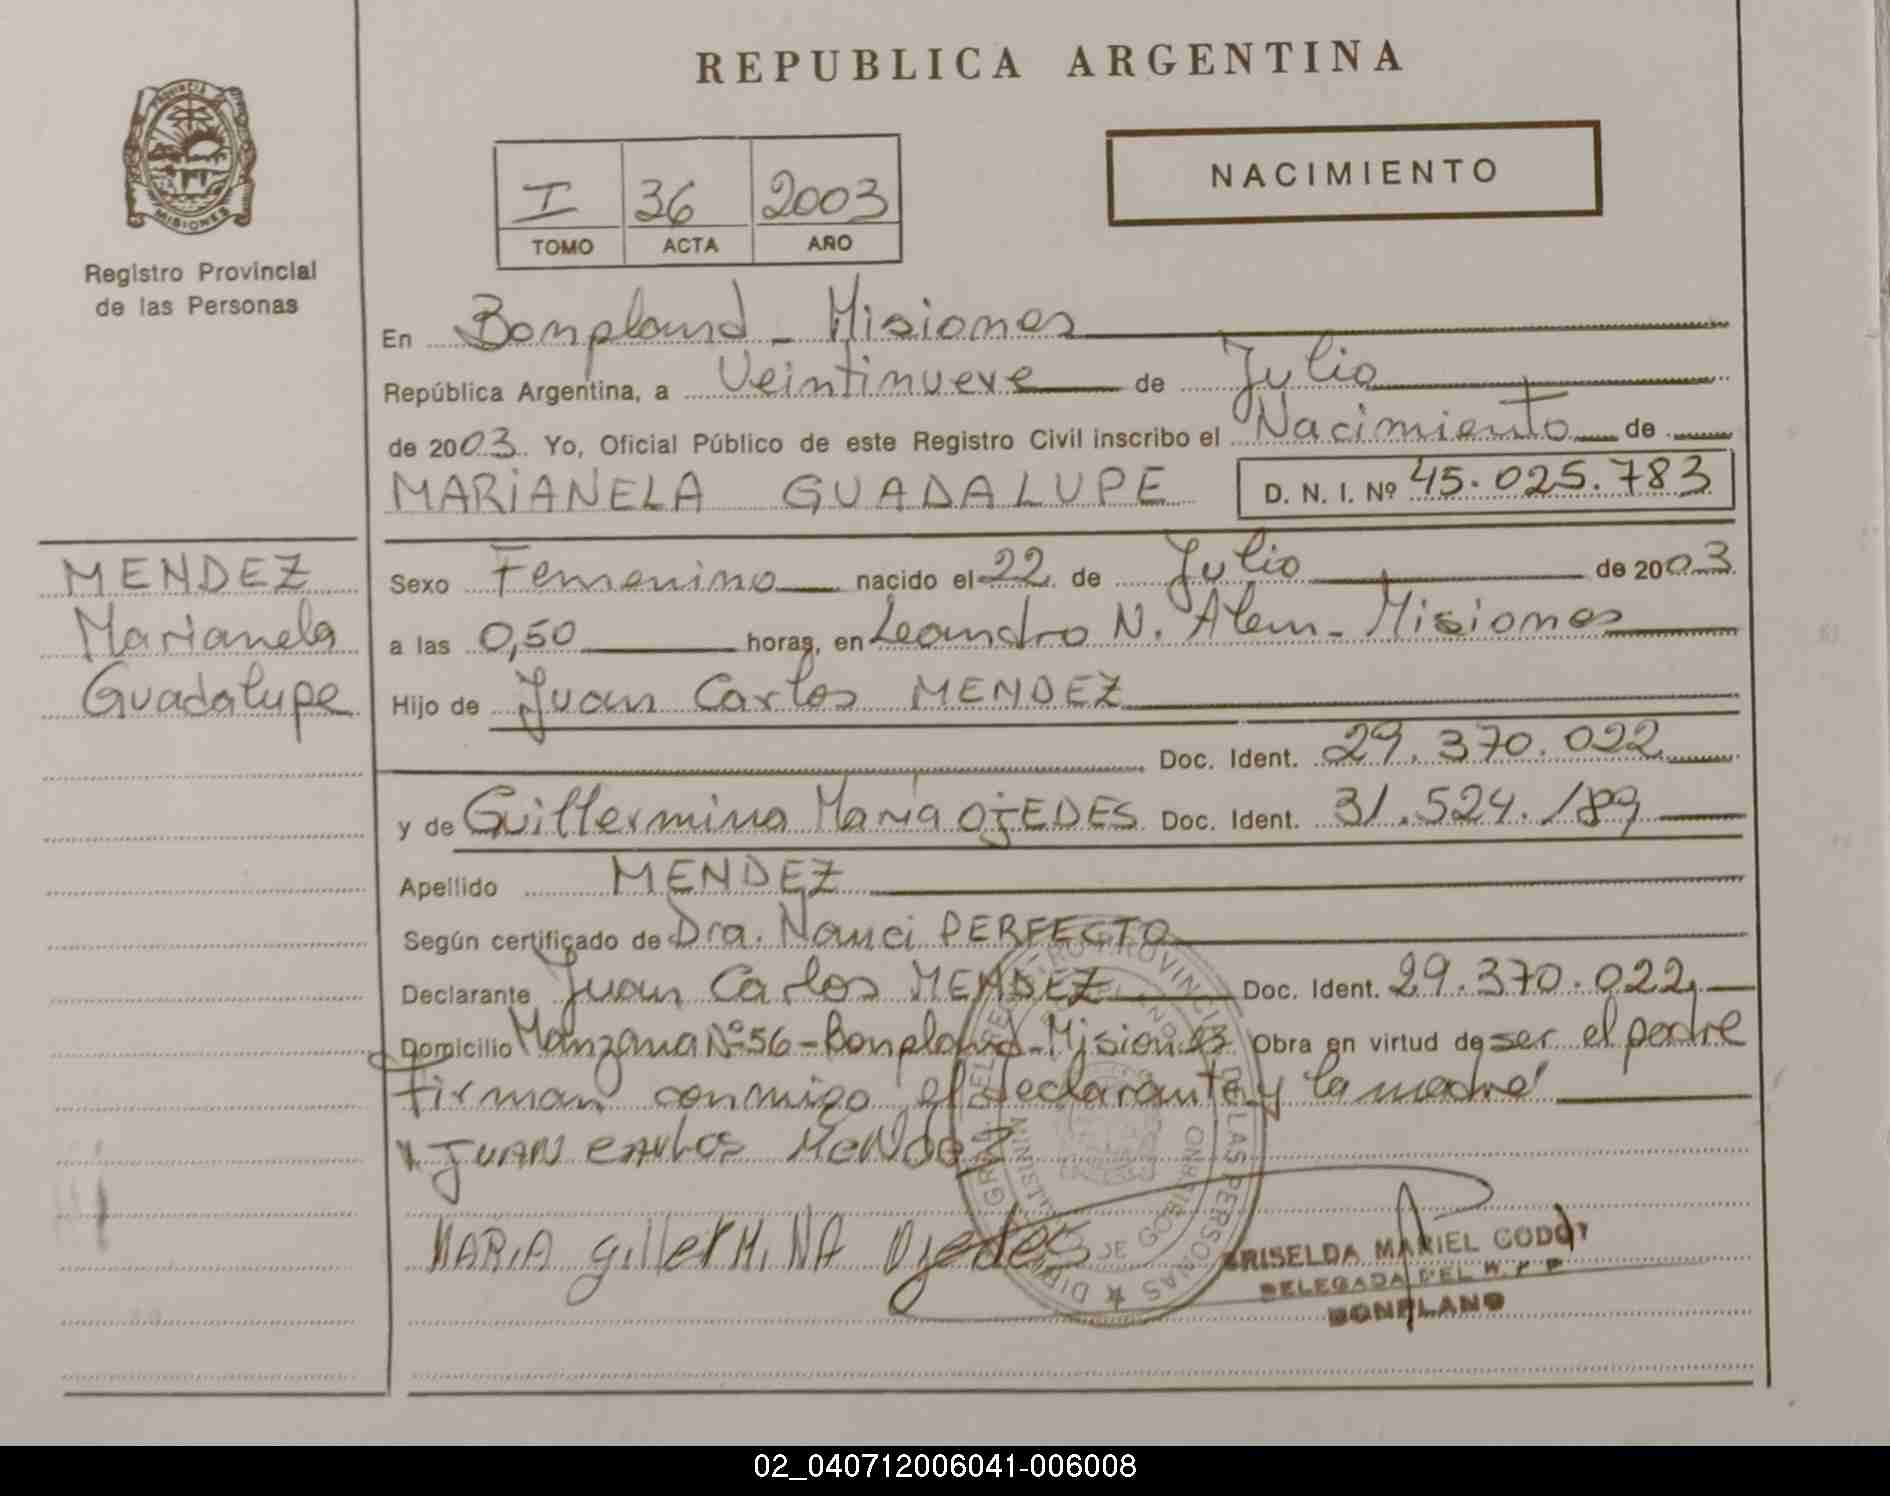 REPUBLICA ARGENTINA
PROVINCIA
MISIONES
Registro Provincial
de las Personas
NACIMIENTO
I 36 2003
TOMO ACTA AÑO
En Bonpland - Misiones
República Argentina, a Veintinueve de Julio
de 2003. Yo, Oficial Público de este Registro Civil inscribo el Nacimiento de
MARIANELA GUADALUPE D. N. I. Nº 45.025.783
MENDEZ
Marianela
Guadalupe
Sexo Femenino nacido el 22 de Julio de 2003
a las 0,50 horas, en Leandro N. Alem - Misiones
Hijo de Juan Carlos MENDEZ
Doc. Ident. 29.370.022
y de Guillermina Maria OjEDES Doc. Ident. 31.524.189
Apellido MENDEZ
Según certificado de Dra. Nanci PERFECTO
Declarante Juan Carlos MENDEZ Doc. Ident. 29.370.022
Domicilio Manzana Nº 56 - Bonpland - Misiones Obra en virtud de ser el padre
Firman conmigo el declarante y la madre
JUAN CARLOS MeNDeZ
MARiA gillerMiNA Ojedes
GRISELDA MARIEL GODOY
DELEGADA DEL
BONPLAND
02_040712006041-006008